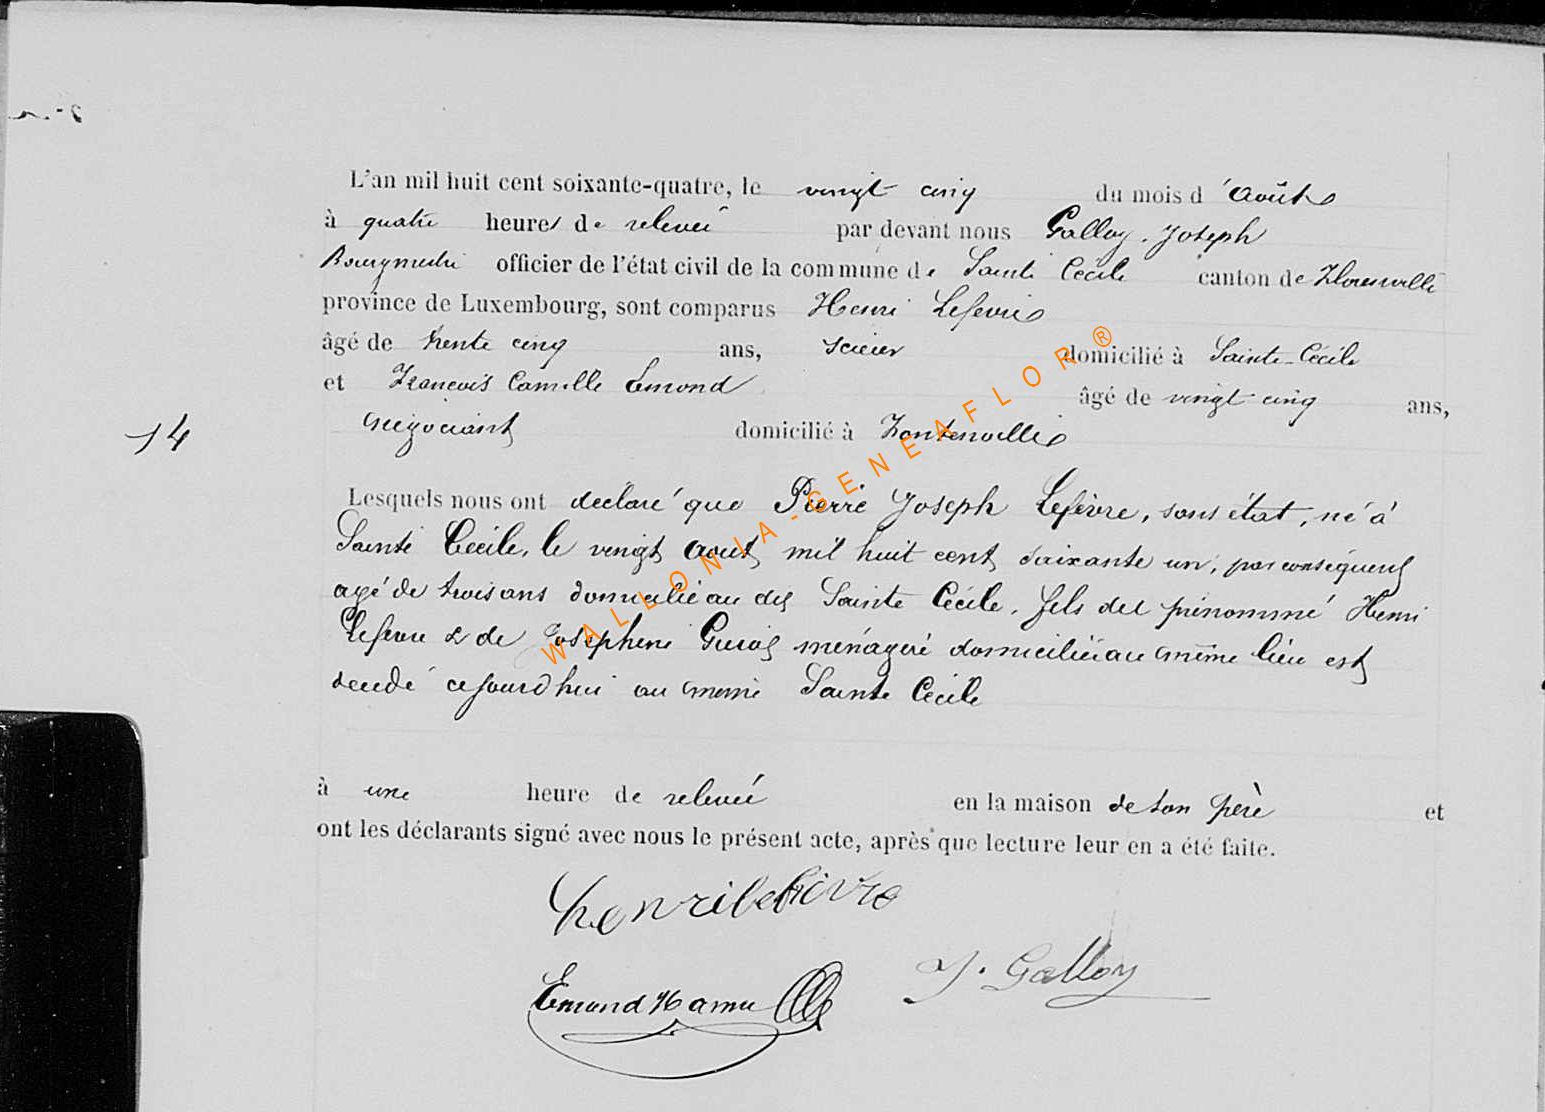 L'an mil huit cent soixante-quatre, le vingt cinq du mois d'Août
à quatre heures de relevée par devant nous Galloy, Joseph
Bourgmestre officier de l'état civil de la commune de Sainte Cécile canton de Florenville
province de Luxembourg, sont comparus Henri Lefevre
âgé de trente cinq ans, scieur domicilié à Sainte-Cécile
et François Camille Emond âgé de vingt cinq ans,
négociant domicilié à Fontenoille
14
Lesquels nous ont déclaré que Pierre Joseph Lefèvre, sans état, né à
Sainte Cécile, le vingt aout mil huit cent soixante un, par conséquent
agé de trois ans domicilié au dit Sainte Cécile, fils du prénommé Henri
Lefevre & de Josephine ménagère domiciliée au même lieu est
décédé cejourd'hui au même Sainte Cécile
à une heure de relevée en la maison de son père et
ont les déclarants signé avec nous le présent acte, après que lecture leur en a été faite.
henri lefèvre
J. Galloy
Emond
WALLONIA-GENEAFLOR®